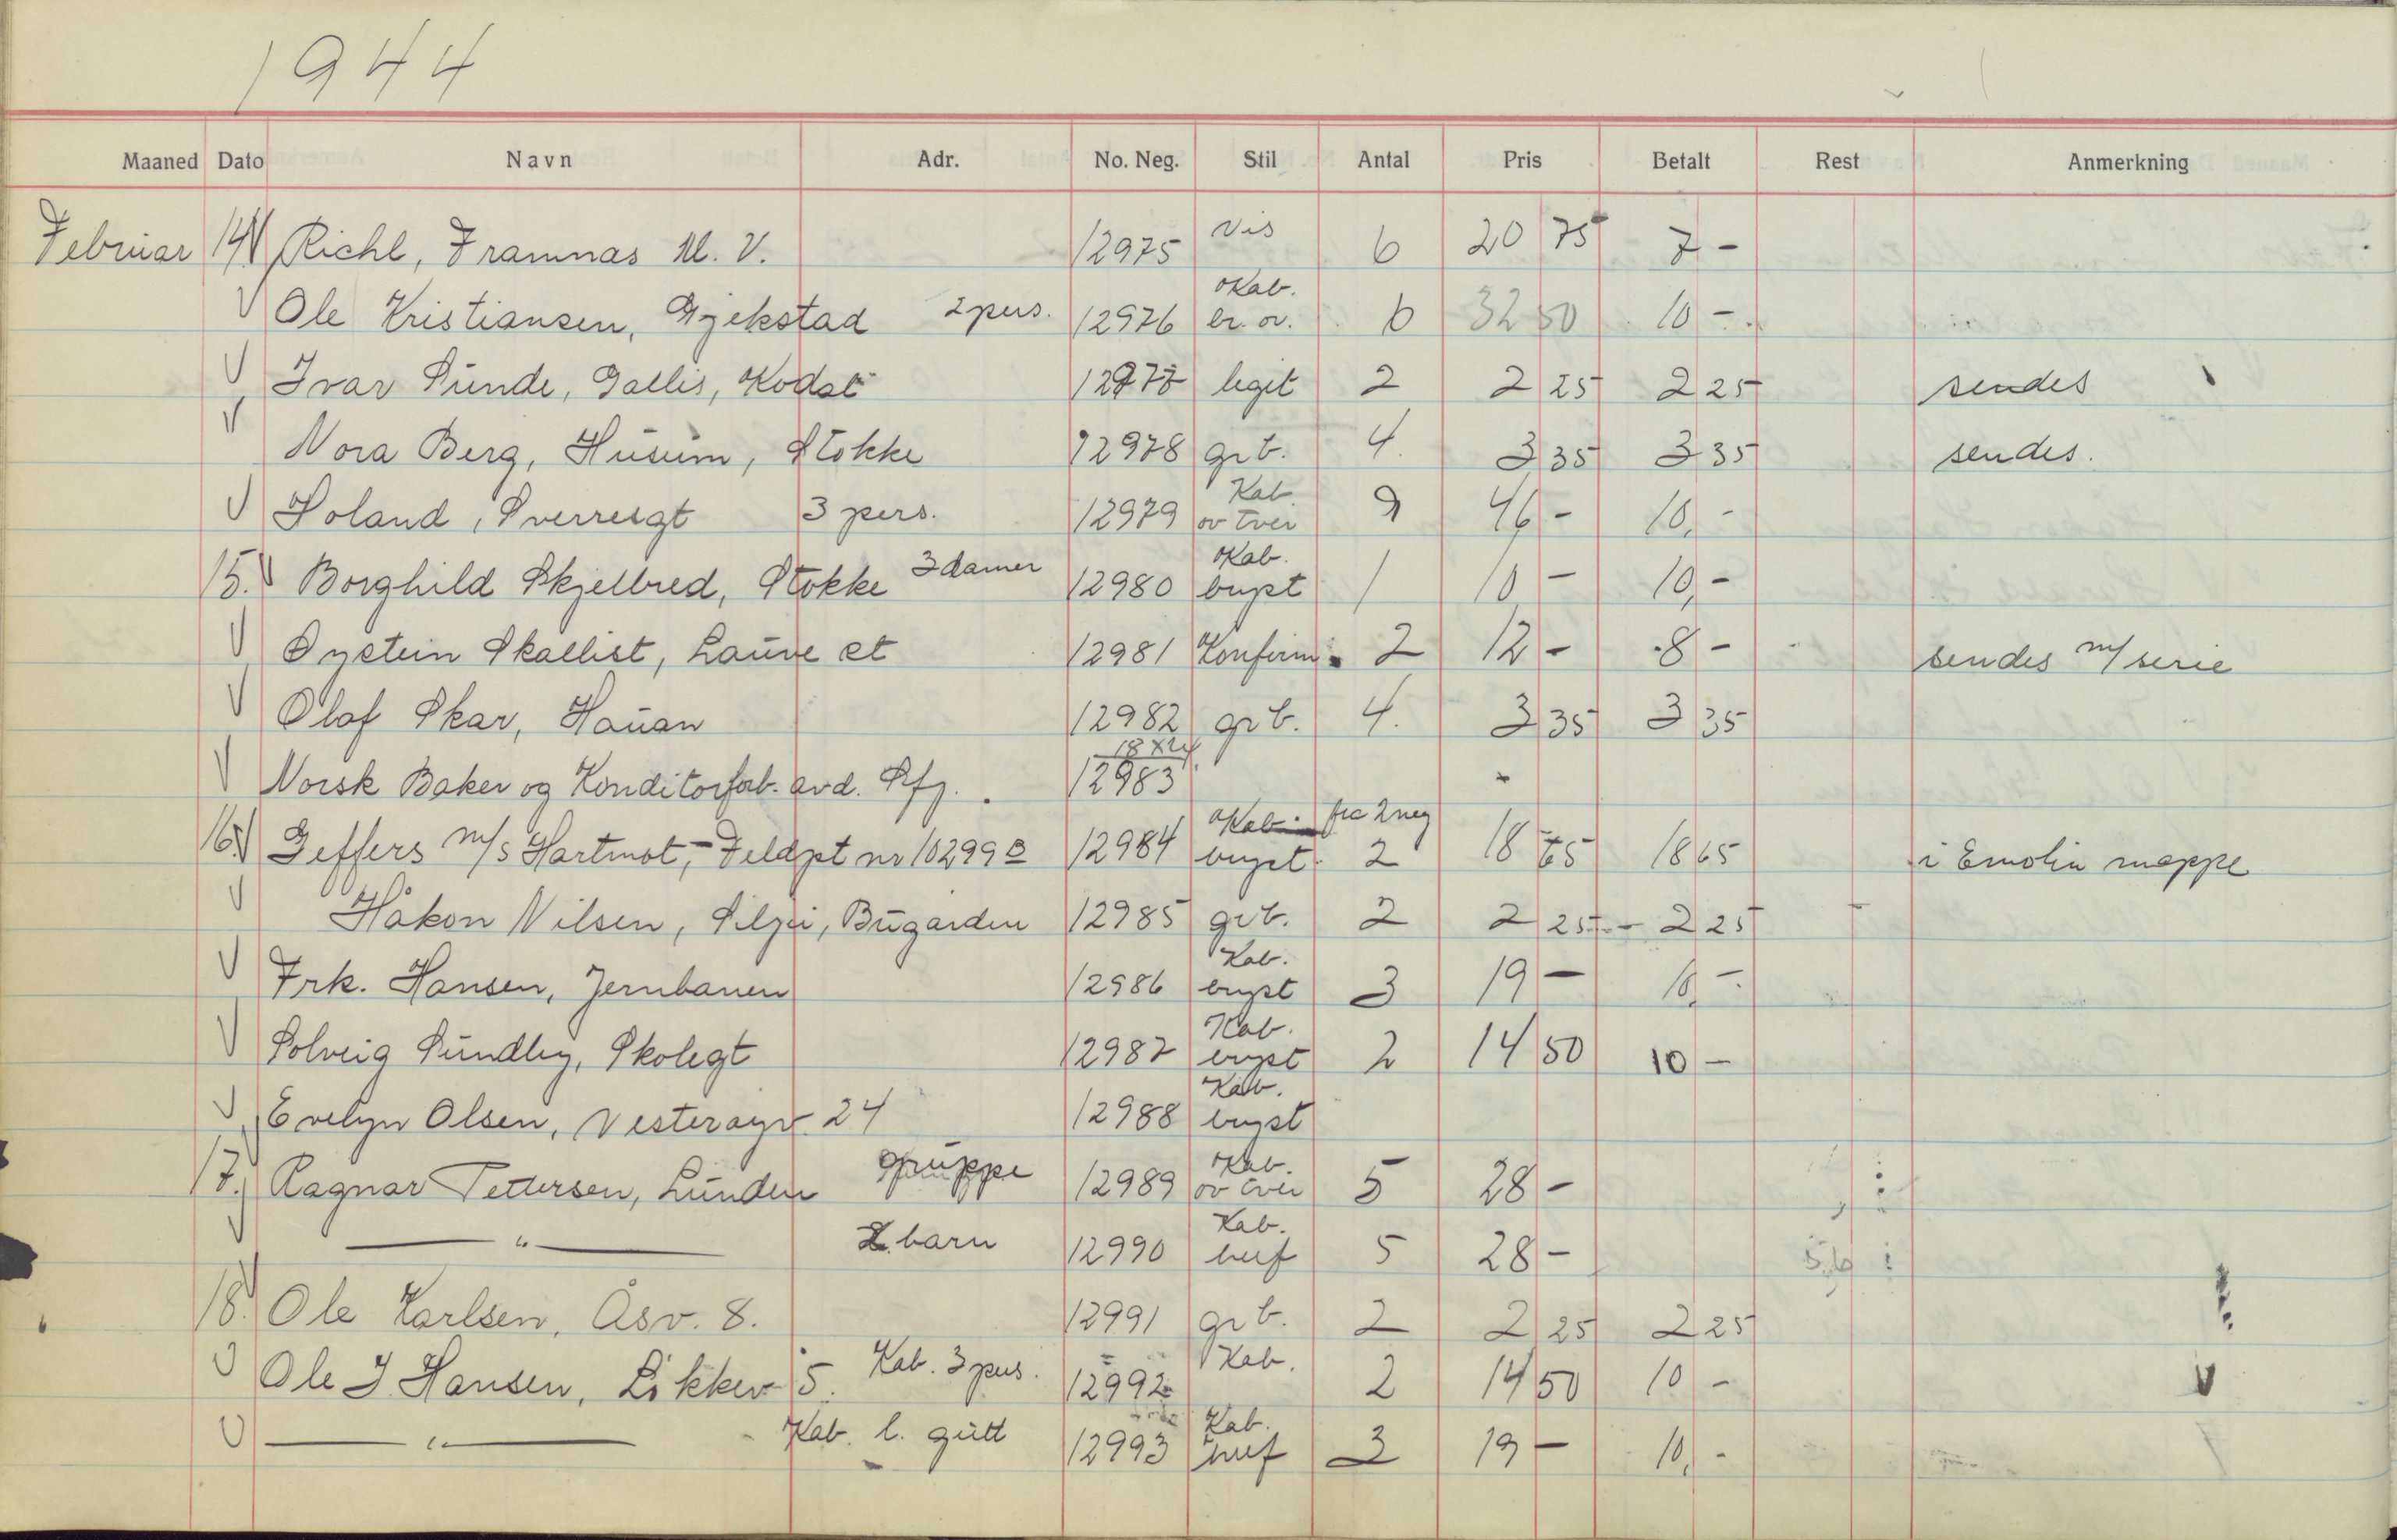 1944
Maaned Dato Navn Adr. No. Neg. Stil Antal Pris Betalt Rest Anmerkning
Februar 14. Richl, Framnæs M. V. 12975 vis 6 20 75 7 -
Ole Kristiansen, Gjekstad 2 pers. 12976 Kab. br. ov. 6 32 50 10 -
Ivar Sunde, Gallis, Kodal 12977 legit 2 2 25 2 25 sendes
Nora Berg, Husum, Stokke 12978 grb. 4. 3 35 3 35 sendes.
Holand, Sverresgt 3 pers. 12979 Kab. ov tver 9 46 - 10, -
15. Borghild Skjelbred, Stokke 3 damer 12980 Kab. bryst 1 10 - 10, -
Øystein Skallist, Lauve st 12981 Konfirm. 2 12 - 8 - sendes m/ serie
Olaf Skar, Hauan 12982 grb. 4. 3 35 3 35
Norsk Baker og Konditorforb. avd. Sfj. 18x24 12983
16. Geffers m/s Hartmot, - Feldpt nr 10299 B 12984 Kab. bryst fra 2 neg 2 18 65 18 65 i Emolin mappe
Håkon Nilsen, Bugarden 12985 grb. 2 2 25 - 2 25
Frk. Hansen, Jernbanen 12986 Kab. bryst 3 19 - 10, -
Solveig Sundby, Skolegt 12987 Kab. bryst 2 14 50 10 -
Evelyn Olsen, Vesterøyv. 24 12988 Kab. bryst
17. Ragnar Pettersen, Lunden gruppe 12989 Kab. ov tver 5 28 -
— " — 2 barn 12990 Kab. huf 5 28 -
18. Ole Karlsen, Åsv. 8. 12991 grb. 2 2 25 2 25
Ole J. Hansen, Løkkev 5. Kab. 3 pers. 12992 Kab. 2 14 50 10 -
— " — Kab. l. gutt 12993 Kab. huf 3 19 - 10, -